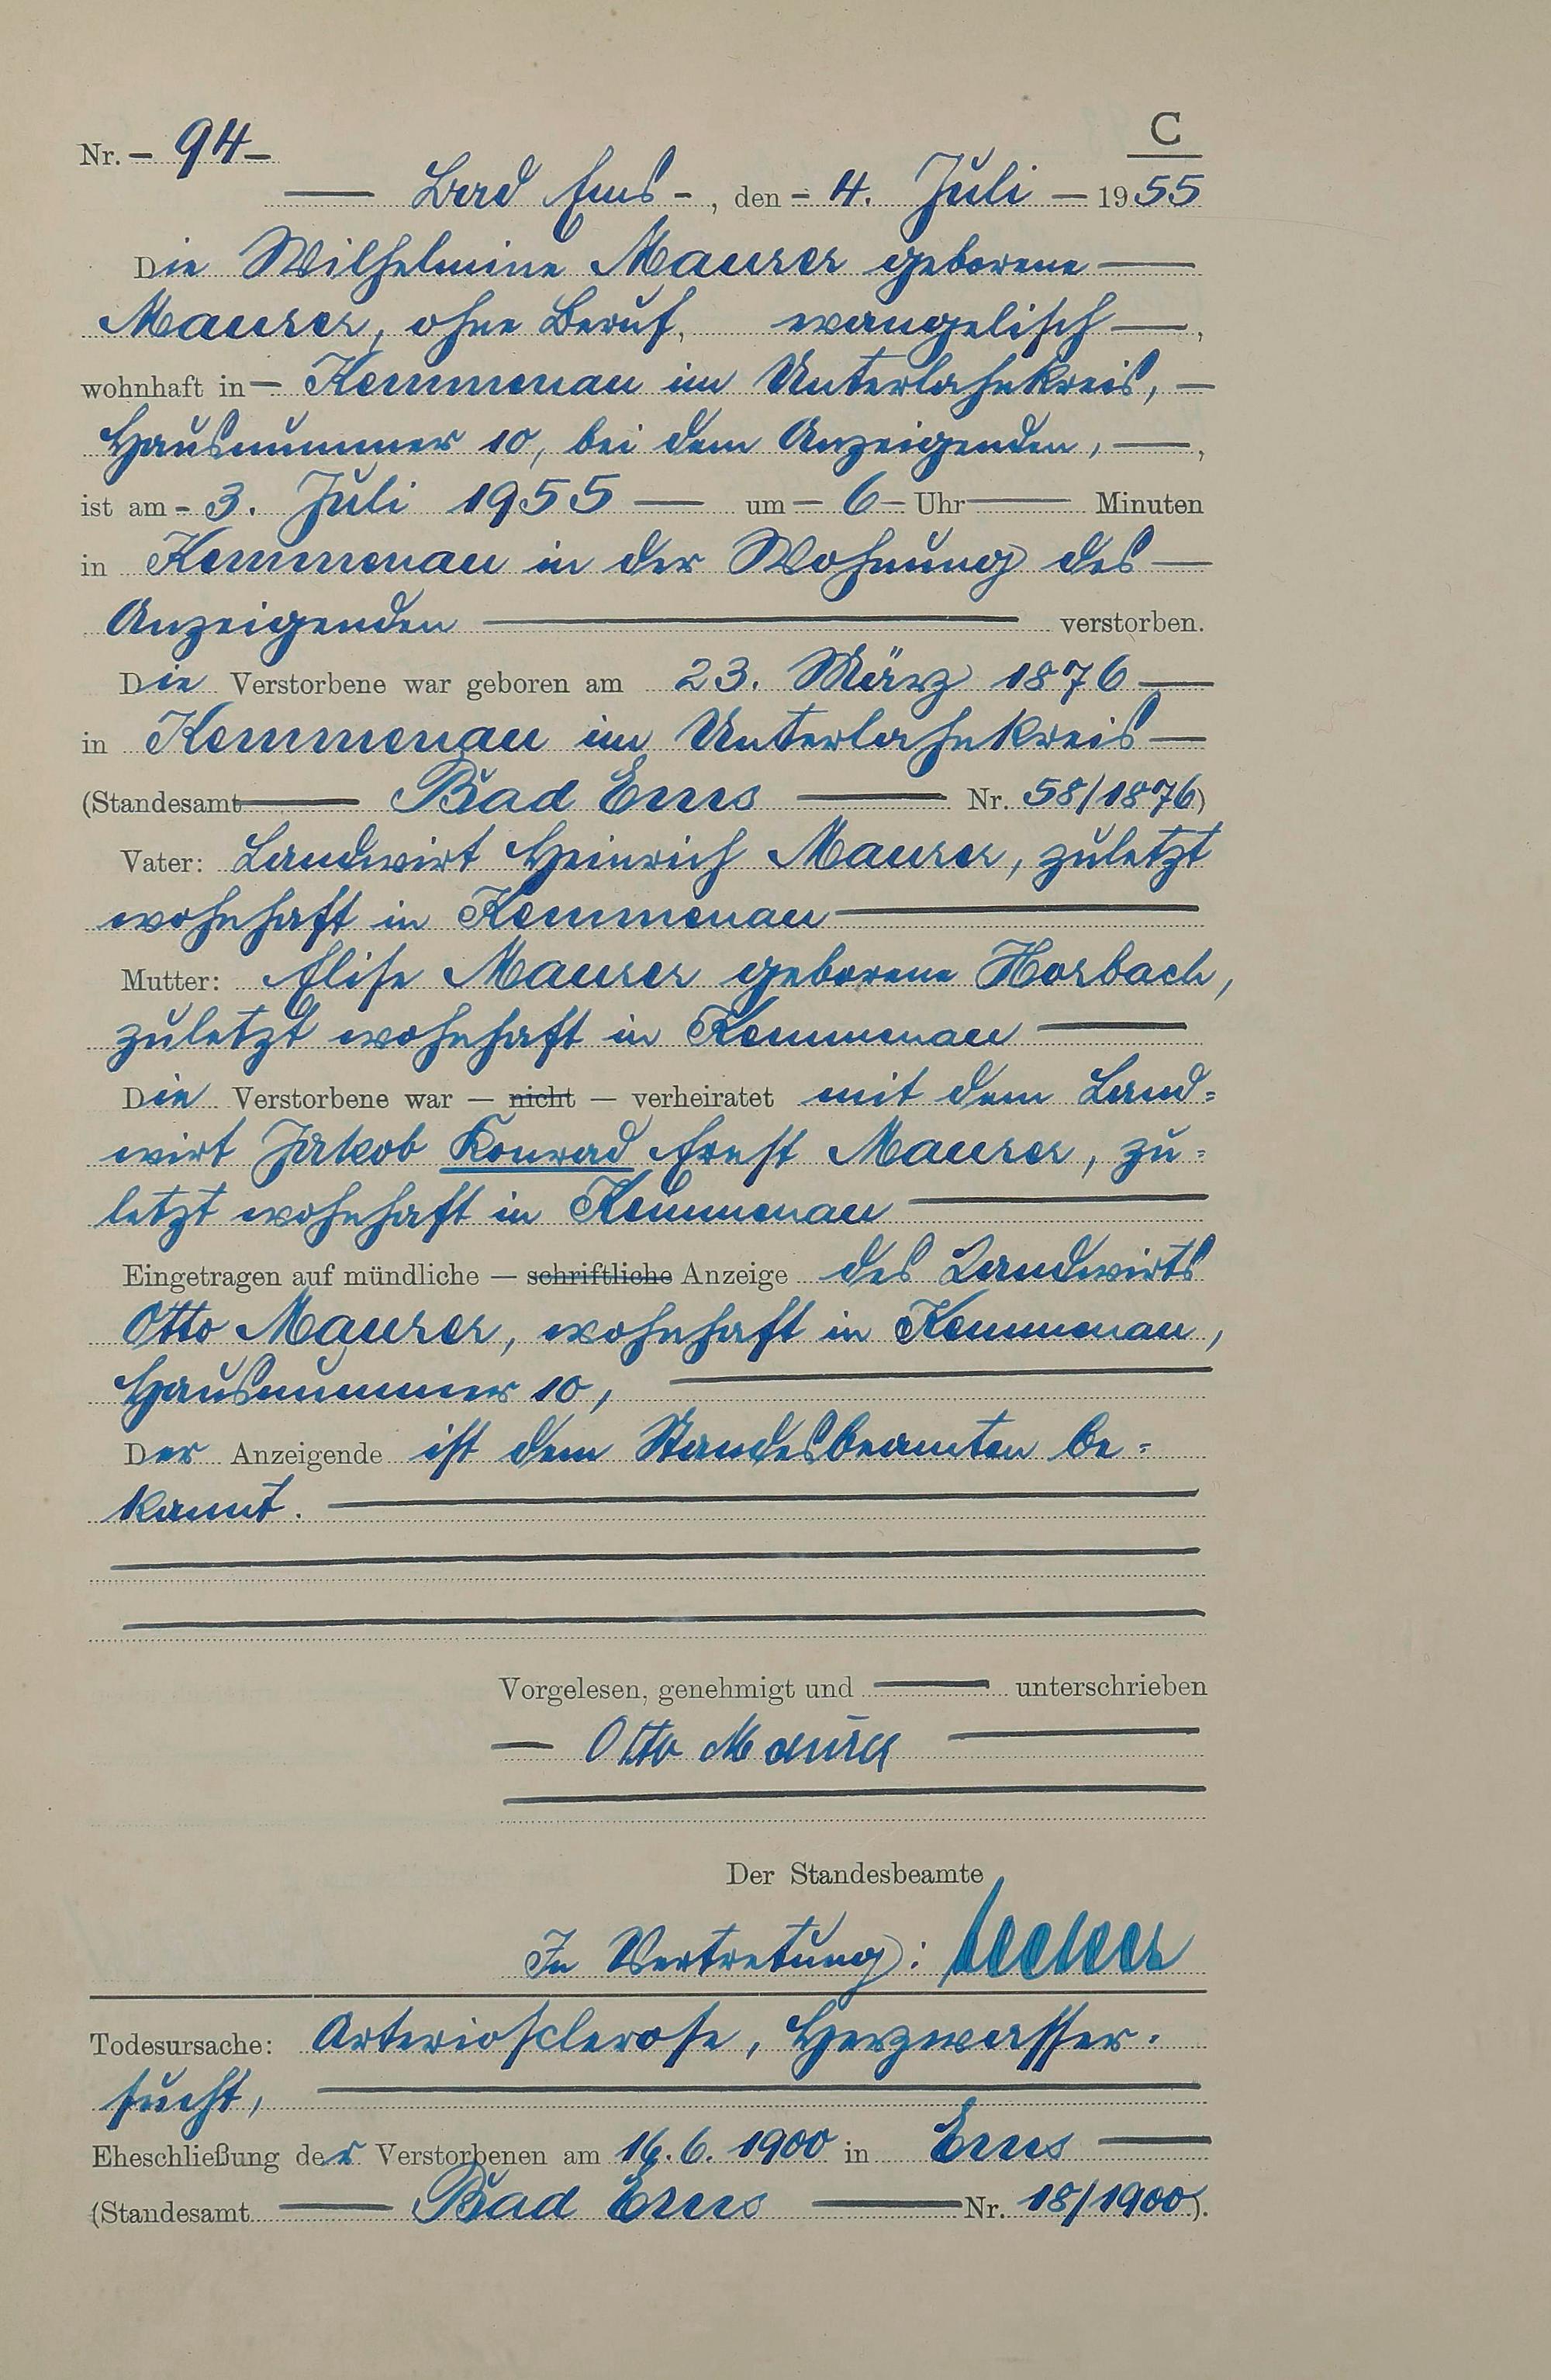 C
Nr. - 94 -
— Bad Ems - , den - 4. Juli — 1955
Die Wilhelmine Maurer geborene —
Maurer, ohne Beruf, evangelisch — ,
wohnhaft in — Kemmenau im Unterlahnkreis, —
Hausnummer 10, bei dem Anzeigenden, — ,
ist am - 3. Juli 1955 — um — 6 — Uhr — Minuten
in Kemmenau in der Wohnung des —
Anzeigenden — verstorben.
Die Verstorbene war geboren am 23. März 1876 —
in Kemmenau im Unterlahnkreis —
(Standesamt — Bad Ems — Nr. 58/1876)
Vater: Landwirt Heinrich Maurer, zuletzt
wohnhaft in Kemmenau —
Mutter: Elise Maurer geborene Horbach,
zuletzt wohnhaft in Kemmenau —
Die Verstorbene war — nicht — verheiratet mit dem Land=
wirt Jakob Konrad Ernst Maurer, zu=
letzt wohnhaft in Kemmenau —
Eingetragen auf mündliche — schriftliche Anzeige des Landwirts
Otto Maurer, wohnhaft in Kemmenau,
Hausnummer 10, —
Der Anzeigende ist dem Standesbeamten be=
kannt. —
Vorgelesen, genehmigt und — unterschrieben
— Otto Maurer —
Der Standesbeamte
In Vertretung:
Todesursache: Arteriosclerose, Herzwasser-
sucht, —
Eheschließung der Verstorbenen am 16.6.1900 in Ems —
(Standesamt — Bad Ems — Nr. 18/1900).